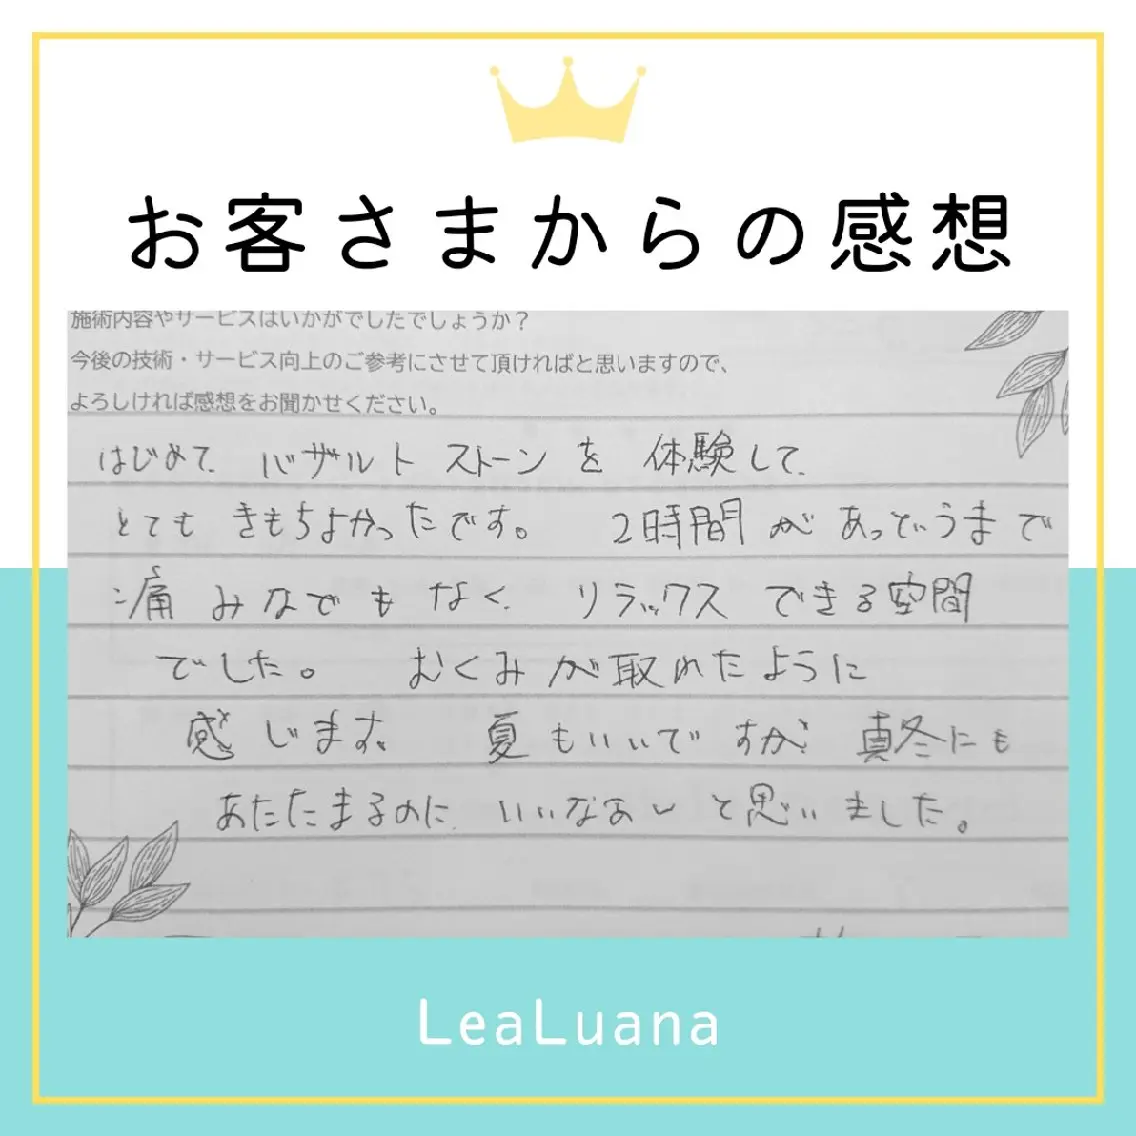 お客さまからの感想
施術内容やサービスはいかがでしたでしょうか？
今後の技術・サービス向上のご参考にさせて頂ければと思いますので、
よろしければ感想をお聞かせください。
はじめて バザルト ストーン を 体験して、
とても きもちよかったです。 2時間が あっというまで
痛みなでもなく、リラックス できる空間
でした。 むくみが取れたように
感じます。 夏もいいですが、真冬にも
あたたまるのに いいなあ〜と思いました。
LeaLuana